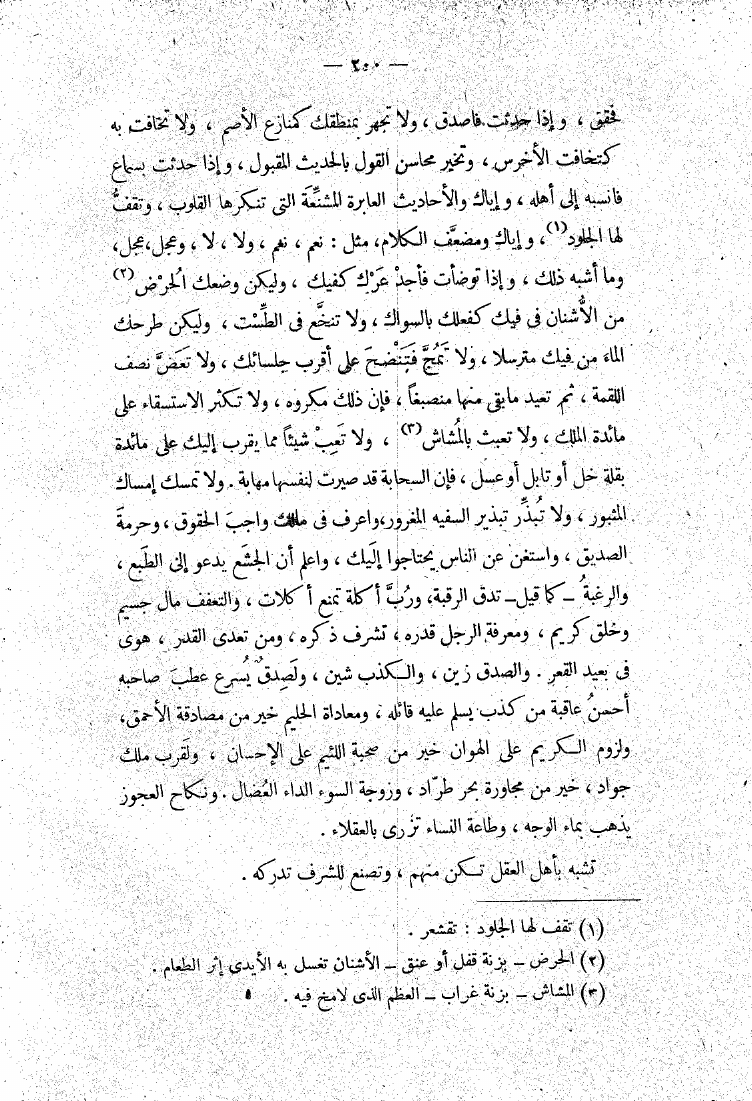 — ٢٠٠ —
فحقق ، وإذا حدثت فاصدق ، ولا تجهر بمنطقك كمنازع الأصم ، ولا تخافت به
كتخافت الأخرس ، وتخير محاسن القول بالحديث المقبول ، وإذا حدثت بسماع
فانسبه إلى أهله ، وإياك والأحاديث العابرة المشنِّعَة التى تنكرها القلوب ، وتقفُّ
لها الجلود(١)، وإياك ومضعَّف الكلام، مثل : نعم ، نعم ، ولا ، لا ، وعجل،عجل،
وما أشبه ذلك ، وإذا توضأت فأجدْ عَرْك كفيك ، وليكن وضعك الحُرْض(٢)
من الأُشنان فى فيك كفعلك بالسواك ، ولا تنخَّع فى الطِّسْت ، وليكن طرحك
الماءَ من فيك مترسلا ، ولا تَمُجَّ فَتَنْضِحَ على أقرب جلسائك ، ولا تَعَضَّ نصف
اللقمة ، ثم تعيد مابقى منها منصبغاً ، فإن ذلك مكروه ، ولا تكثر الاستسقاء على
مائدة الملك ، ولا تعبث بالمُشاش(٣) ، ولا تَعِبْ شيئاً مما يقرب إليك على مائدة
بقلة خل أو تابل أو عسل ، فإن السحابة قد صيرت لنفسها مهابة . ولا تمسك إمساك
المثبور ، ولا تُبذِّر تبذير السفيه المغرور،واعرف فى مالك واجبَ الحقوق ، وحرمةَ
الصديق ، واستغن عن الناس يحتاجوا إلَيك ، واعلم أن الجشَع يدعو إلى الطَبع ،
والرغبةُ ــ كما قيل ــ تدق الرقبة، ورُبَّ أكلة تمنع أكلات ، والتعفف مال جسيم
وخلق كريم ، ومعرفة الرجل قدره ، تشرف ذكره ، ومن تعدى القدر ، هوى
فى بعيد القعر . والصدق زين ، والكذب شين ، ولَصِدقٌ يُسرع عطبَ صاحبه
أحسنُ عاقبة من كذب يسلم عليه قائله ، ومعاداة الحليم خير من مصادقة الأحمق،
ولزوم الكريم على الهوان خير من صحبة اللئيم على الإحسان ، ولَقرب ملك
جواد ، خير من مجاورة بحر طرّاد ، وزوجة السوء الداء العُضال . ونكاح العجوز
يذهب بماء الوجه ، وطاعة النساء تزرى بالعقلاء .
تشبه بأهل العقل تكن منهم ، وتصنع للشرف تدركه .
(١) تقف لها الجلود : تقشعر .
(٢) الحرض ــ بزنة قفل أو عنق ــ الأشنان تغسل به الأيدى إثر الطعام .
(٣) المشاش ــ بزنة غراب ــ العظم الذى لامخ فيه .